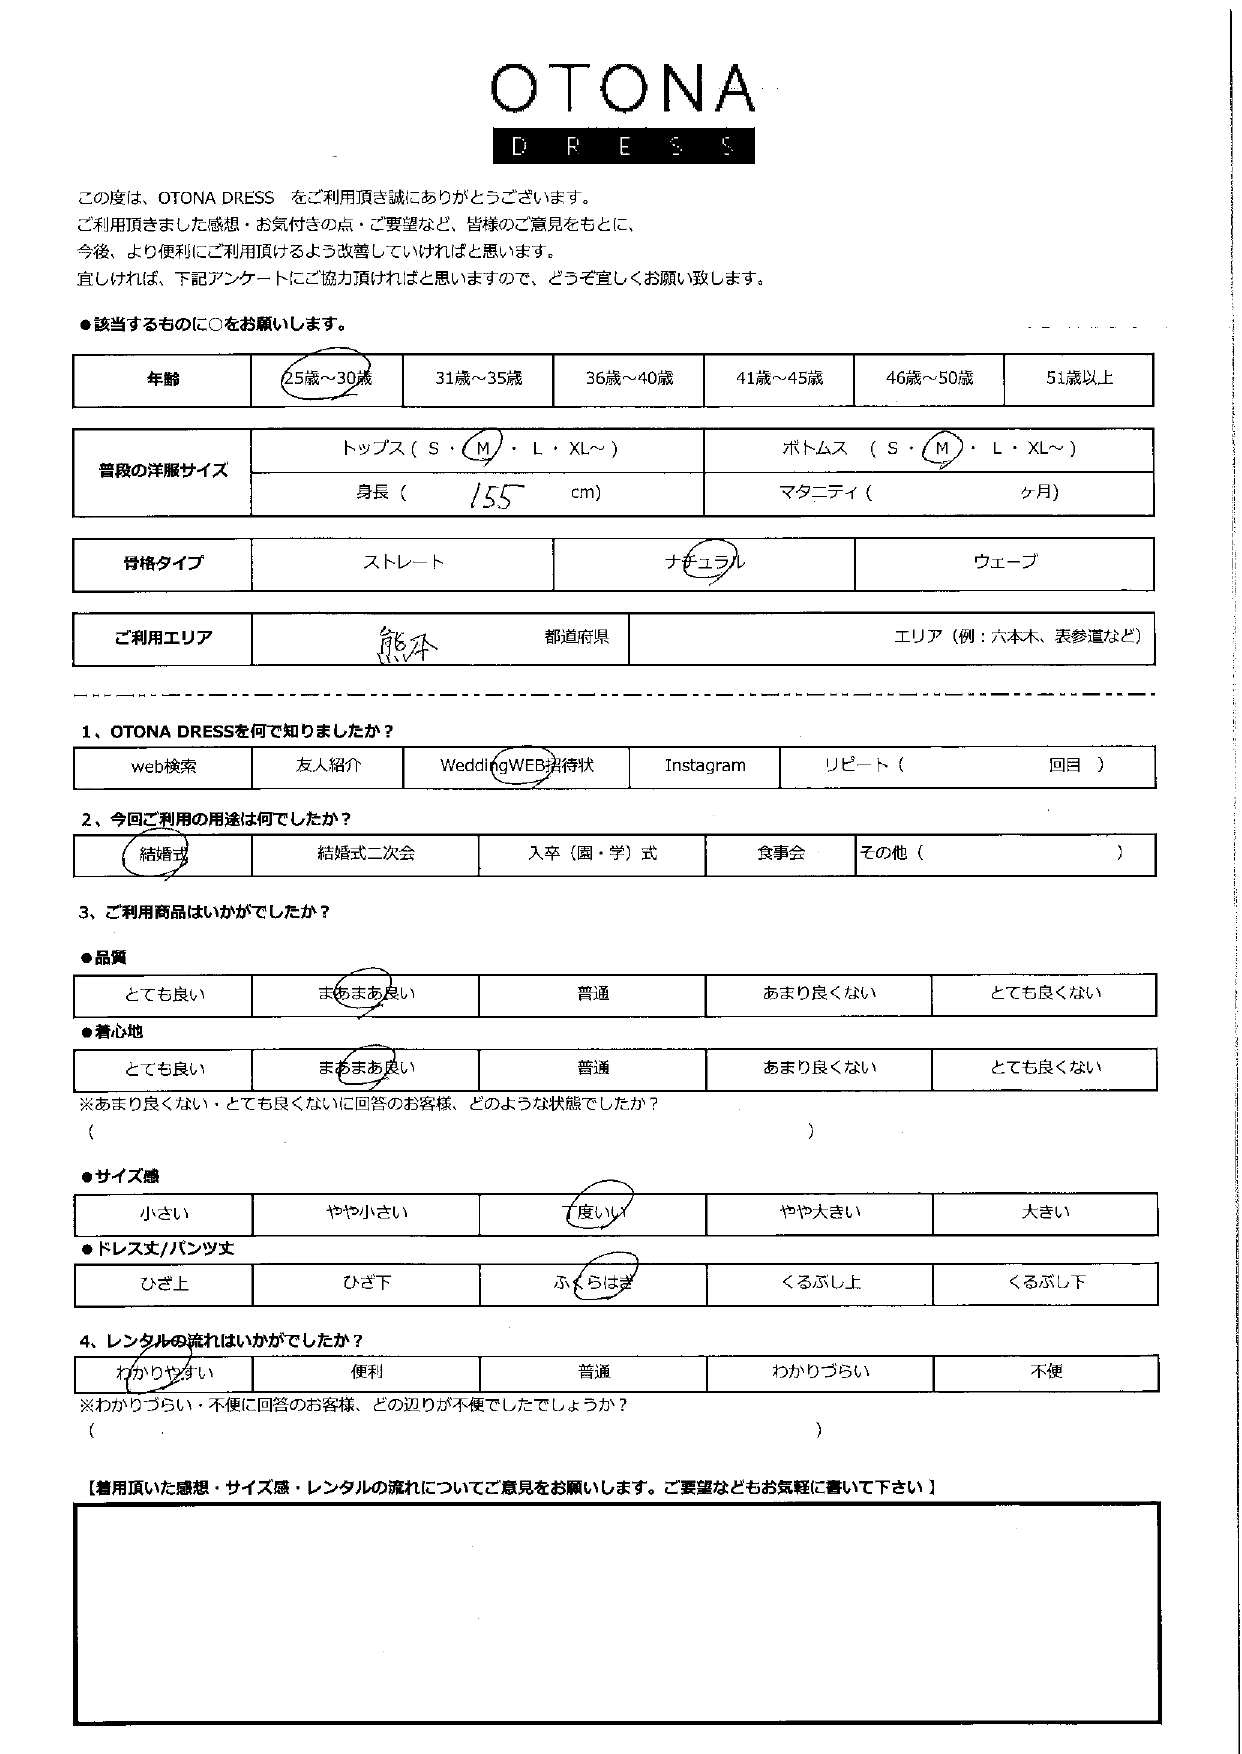 OTONA
DRESS
この度は、OTONA DRESS　をご利用頂き誠にありがとうございます。
ご利用頂きました感想・お気付きの点・ご要望など、皆様のご意見をもとに、
今後、より便利にご利用頂けるよう改善していければと思います。
宜しければ、下記アンケートにご協力頂ければと思いますので、どうぞ宜しくお願い致します。
●該当するものに○をお願いします。
年齢 25歳～30歳 31歳～35歳 36歳～40歳 41歳～45歳 46歳～50歳 51歳以上
普段の洋服サイズ トップス ( S ・ M ・ L ・ XL～ ) ボトムス ( S ・ M ・ L ・ XL～ )
身長 ( 155 cm) マタニティ ( ヶ月)
骨格タイプ ストレート ナチュラル ウェーブ
ご利用エリア 熊本 都道府県 エリア（例：六本木、表参道など）
1、OTONA DRESSを何で知りましたか？
web検索 友人紹介 WeddingWEB招待状 Instagram リピート ( 回目 )
2、今回ご利用の用途は何でしたか？
結婚式 結婚式二次会 入卒（園・学）式 食事会 その他 ( )
3、ご利用商品はいかがでしたか？
●品質
とても良い まあまあ良い 普通 あまり良くない とても良くない
●着心地
とても良い まあまあ良い 普通 あまり良くない とても良くない
※あまり良くない・とても良くないに回答のお客様、どのような状態でしたか？
( )
●サイズ感
小さい やや小さい 丁度いい やや大きい 大きい
●ドレス丈/パンツ丈
ひざ上 ひざ下 ふくらはぎ くるぶし上 くるぶし下
4、レンタルの流れはいかがでしたか？
わかりやすい 便利 普通 わかりづらい 不便
※わかりづらい・不便に回答のお客様、どの辺りが不便でしたでしょうか？
( )
【着用頂いた感想・サイズ感・レンタルの流れについてご意見をお願いします。ご要望などもお気軽に書いて下さい】